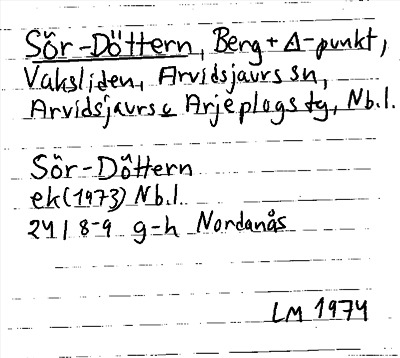 Sör-Döttern, Berg + Δ-punkt,
Vaksliden, Arvidsjaurs sn,
Arvidsjaurs o Arjeplogs tg, Nb.l.
Sör-Döttern
ek (1973) Nb.l.
24 I 8-9 g-h Nordanås
LM 1974